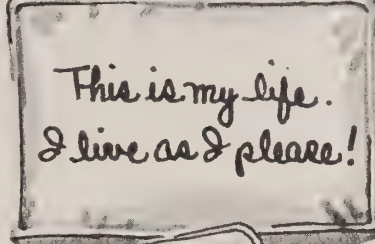 This is my life.
I live as I please!